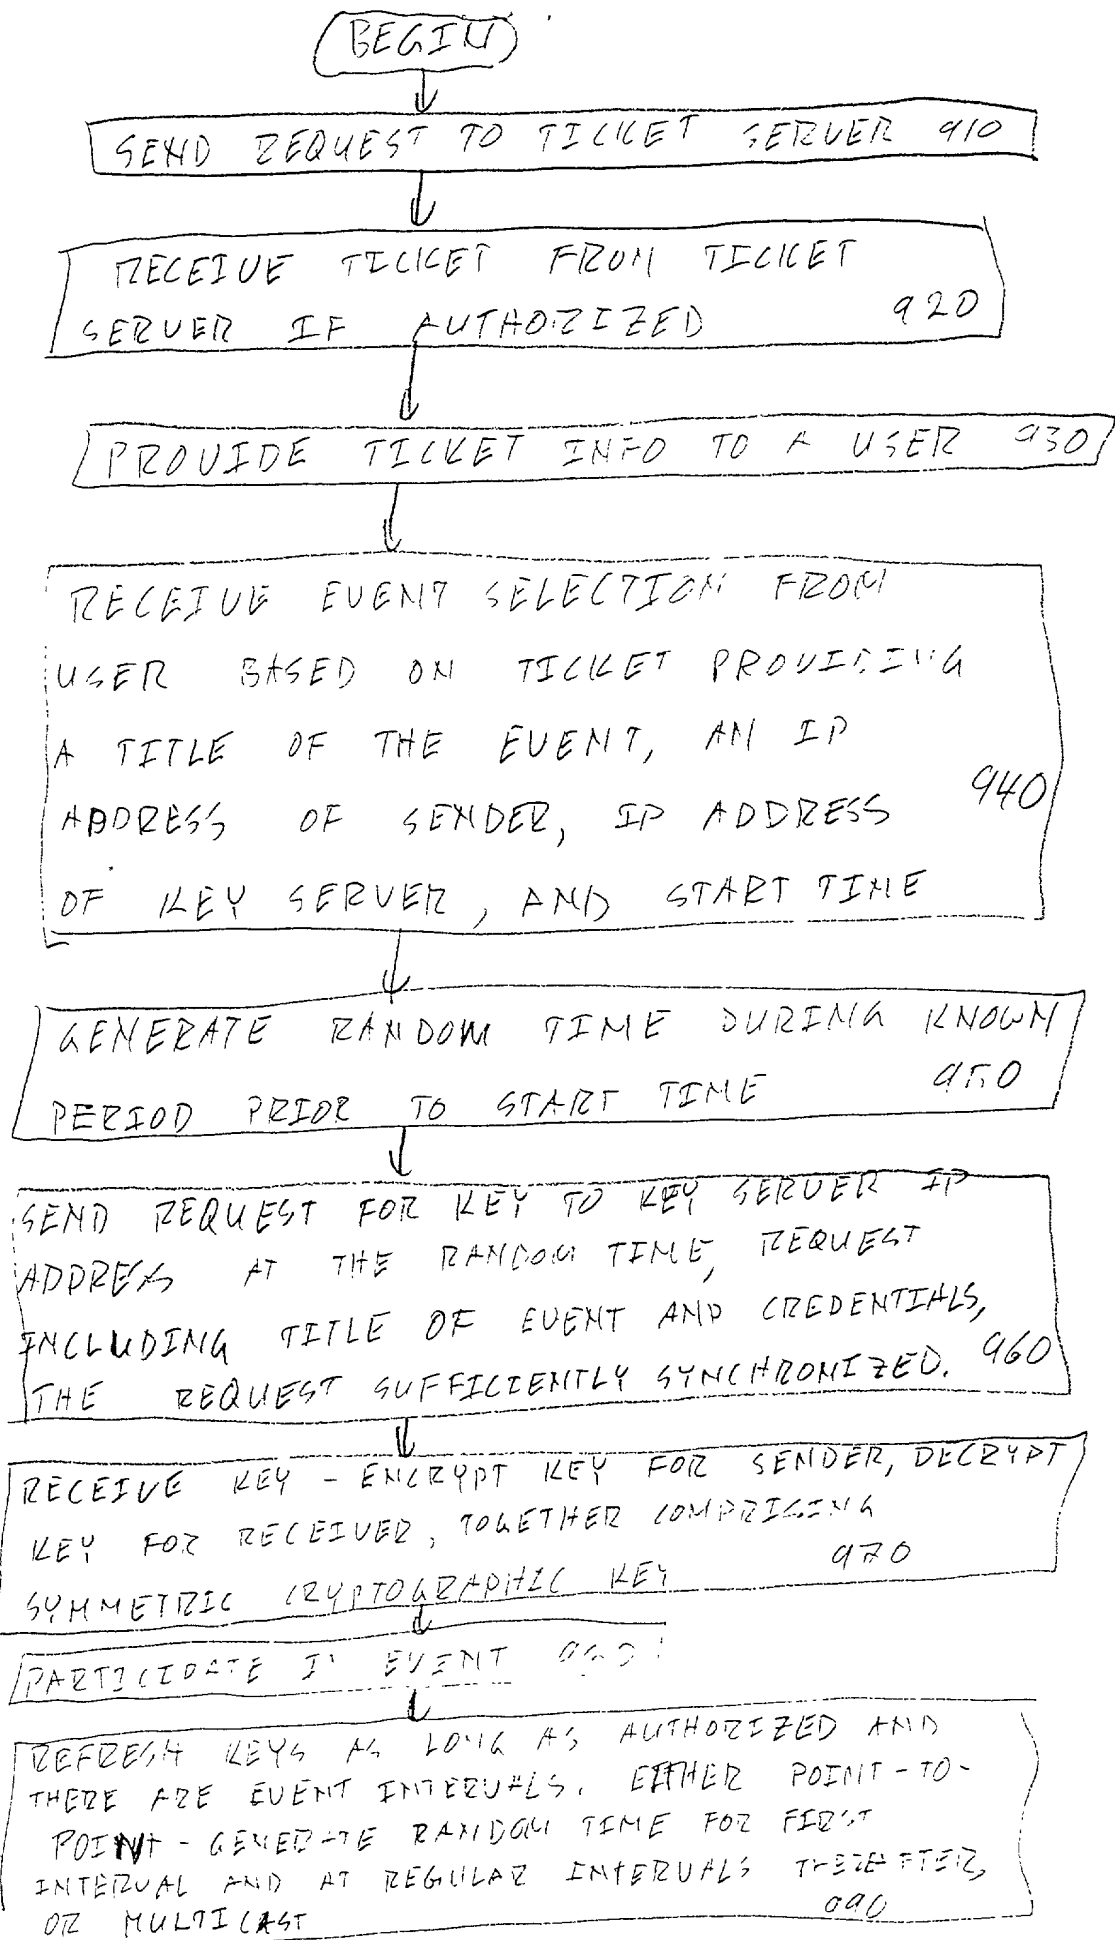 BEGIN
SEND REQUEST TO TICKET SERVER 910
RECEIVE TICKET FROM TICKET
SERVER IF AUTHORIZED 920
PROVIDE TICKET INFO TO A USER 930
RECEIVE EVENT SELECTION FROM
USER BASED ON TICKET PROVIDING
A TITLE OF THE EVENT, AN IP
ADDRESS OF SENDER, IP ADDRESS 940
OF KEY SERVER, AND START TIME
GENERATE RANDOM TIME DURING KNOWN
PERIOD PRIOR TO START TIME 950
SEND REQUEST FOR KEY TO KEY SERVER IP
ADDRESS AT THE RANDOM TIME, REQUEST
INCLUDING TITLE OF EVENT AND CREDENTIALS,
THE REQUEST SUFFICIENTLY SYNCHRONIZED. 960
RECEIVE KEY - ENCRYPT KEY FOR SENDER, DECRYPT
KEY FOR RECEIVER, TOGETHER COMPRISING
SYMMETRIC CRYPTOGRAPHIC KEY 970
PARTICIPATE IN EVENT
REFRESH KEYS AS LONG AS AUTHORIZED AND
THERE ARE EVENT INTERVALS. EITHER POINT-TO-
POINT - GENERATE RANDOM TIME FOR FIRST
INTERVAL AND AT REGULAR INTERVALS THEREAFTER,
OR MULTICAST 990